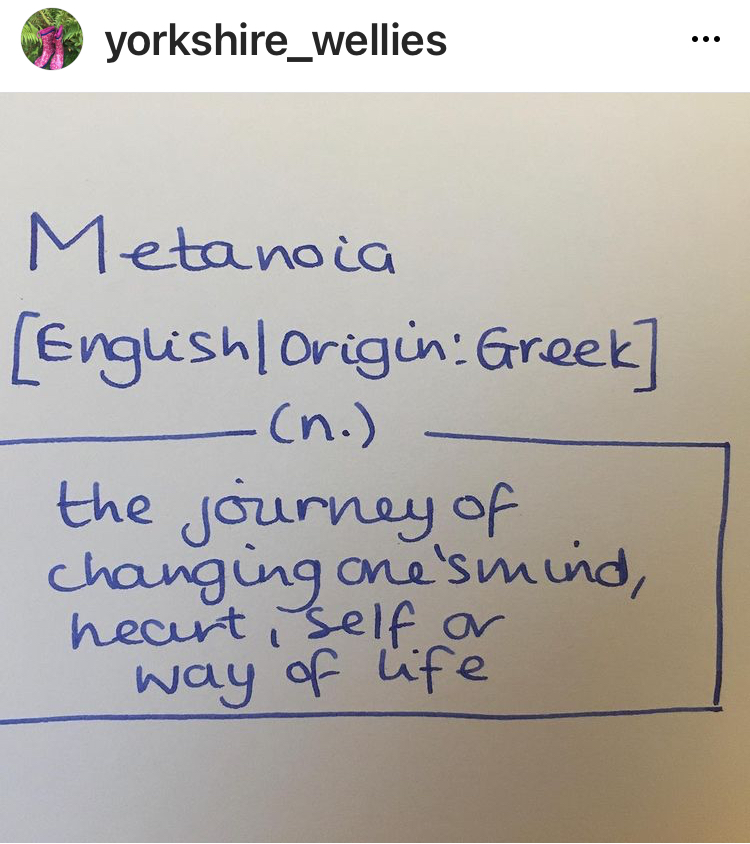 yorkshire_wellies
Metanoia
[English|Origin: Greek]
(n.)
the journey of
changing one's mind,
heart, self or
way of life